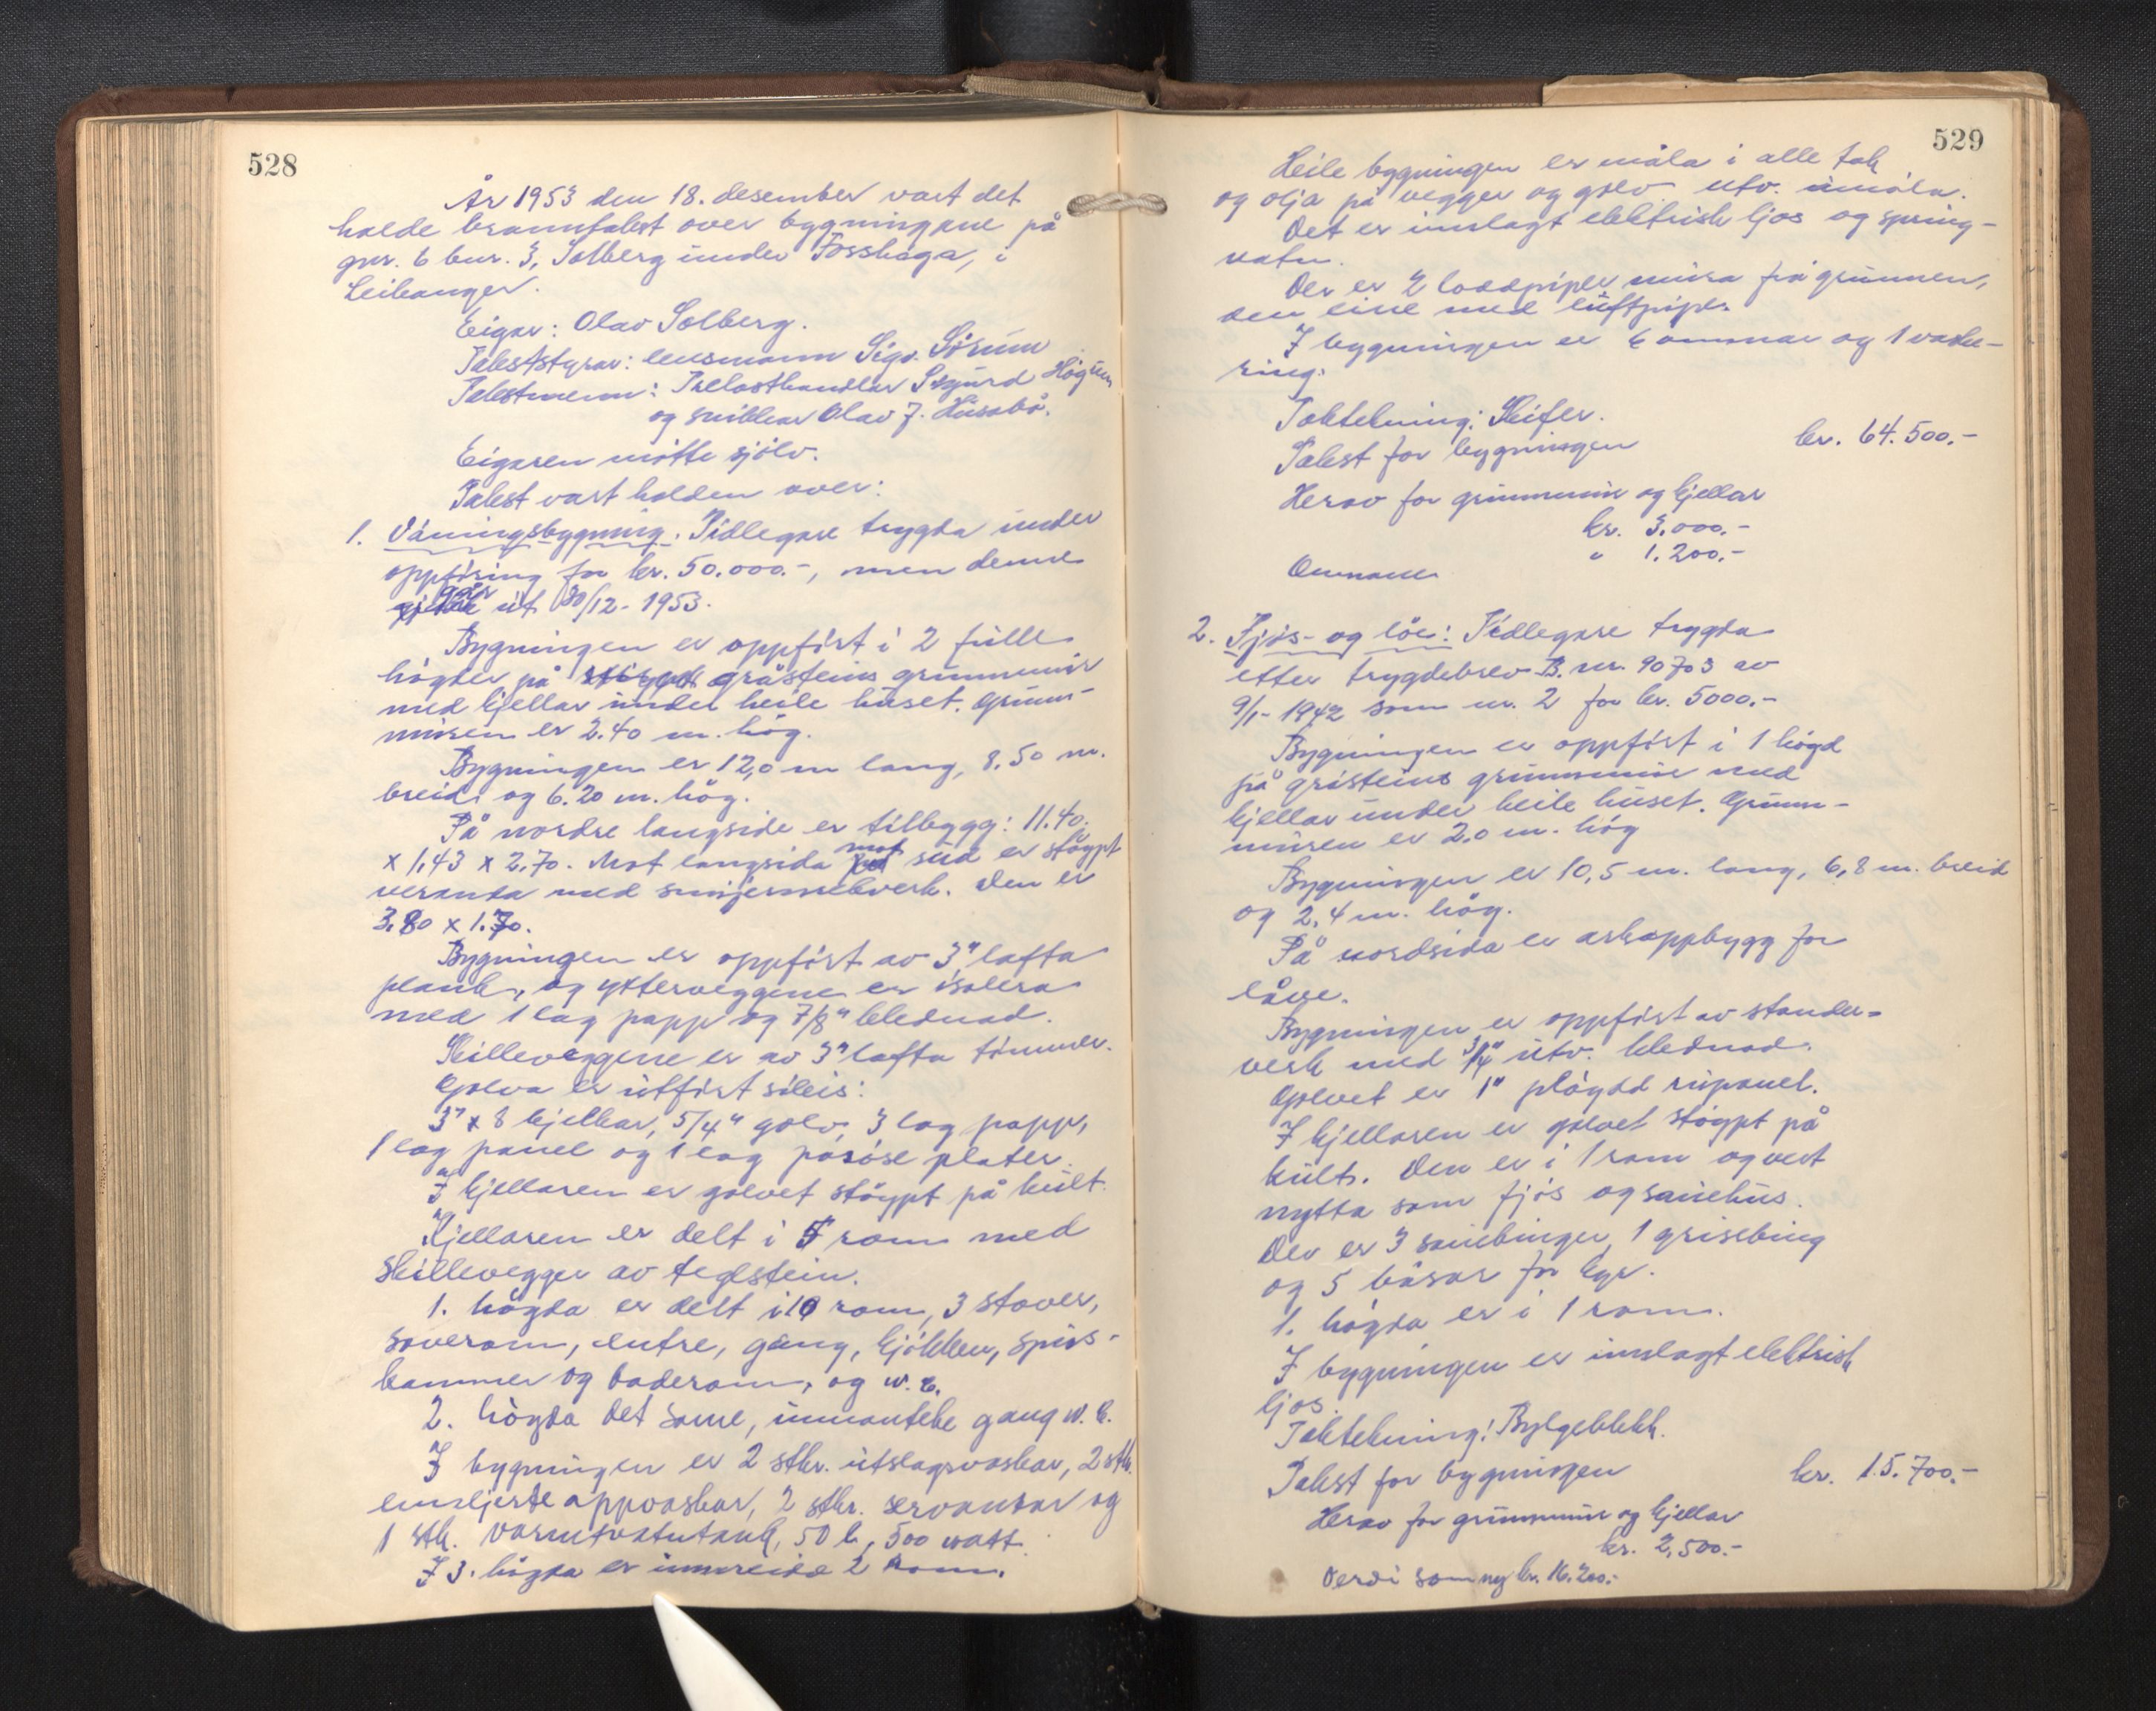 528
År 1953 den 18. desember vart det
halde branntakst over bygningane på
gnr. 6 bnr. 3, Solberg under Fosshaga, i
Leikanger.
Eigar: Olav Solberg.
Takststyrar: lensmann Sigv. Sørum
Takstmenn: Trelasthandlar Sigurd Høgum
og snikkar Olav J. Husabø.
Eigaren møtte sjølv.
Takst vart halden over:
1. Våningsbygning. Tidlegare trygda under
oppføring for kr. 50.000.-, men denne
går ut 30/12- 1953.
Bygningen er oppført i 2 fulle
høgder på gråsteins grunnmur
med kjellar under heile huset. Grunn-
muren er 2.40 m. høg.
Bygningen er 12,0 m lang, 8.50 m.
breid og 6.20 m. høg.
På nordre langside er tilbygg: 11.40.
x 1,43 x 2.70. Mot langsida mot sud er støypt
veranda med smijernrekkverk. Den er
3.80 x 1.70.
Bygningen er oppført av 3" lafta
plank, og ytterveggene er isolera
med 1 lag papp og 7/8" klednad.
Skilleveggene er av 3" lafta tømmer.
Golva er utført såleis:
3" x 8 bjelkar, 5/4" golv, 3 lag papp,
1 lag panel og 1 lag porøse plater.
I kjellaren er golvet støypt på kult.
Kjellaren er delt i 5 rom med
skillevegger av teglstein.
1. høgda er delt i 10 rom, 3 stover,
soverom, entre, gang, kjøkken, spis-
kammer og baderom, og w.c.
2. høgda det same, unnanteke gang w.c.
I bygningen er 2 stkr. utslagsvaskar, 2 stk.
emaljerte oppvaskar, 2 stkr. servantar og
1 stk. varmtvatntank, 50 l, 500 watt.
I 3. høgda er innreidd 2 rom.
529
Heile bygningen er måla i alle tak
og olja på vegger og golv. utv. umåla.
Det er innlagt elektrisk ljos og spring-
vatn.
Der er 2 loddpiper mura frå grunnen,
den eine med luftpipe.
I bygningen er 6 omnar og 1 vaske-
ring.
Taktekning: Skifer.
Takst for bygningen kr. 64.500.-
Herav for grunnmur og kjellar
kr. 3.000.-
Omnane " 1.200.-
2. Fjøs- og løe: Tidlegare trygda
etter trygdebrev B. nr. 90703 av
9/1- 1942 som nr. 2 for kr. 5000.-
Bygningen er oppført i 1 høgd
på gråsteins grunnmur med
kjellar under heile huset. Grunn-
muren er 2.0 m. høg
Bygningen er 10,5 m. lang, 6,8 m. breid
og 2,4 m. høg.
På nordsida er arkoppbygg for
låve.
Bygningen er oppført av stender-
verk med 3/4" utv. klednad.
Golvet er 1" pløgdd rupanel.
I kjellaren er golvet støypt på
kult. Den er i 1 rom og vert
nytta som fjøs og sauehus.
Der er 3 sauebinger, 1 grisebing
og 5 båsar for kyr.
1. høgda er i 1 rom.
I bygningen er innlagt elektrisk
ljos.
Taktekning: Bylgeblekk.
Takst for bygningen kr. 15.700.-
Herav for grunnmur og kjellar
kr. 2,500.-
Verdi som ny kr. 16.200.-